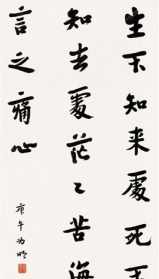 生不知来處死不
知去處茫々苦海
言之痛心
庚午